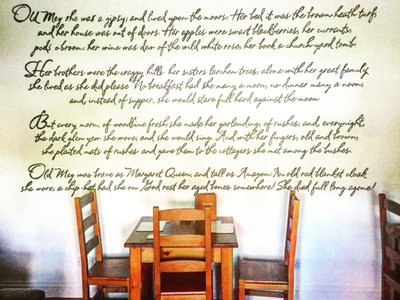 Old May she was a gipsy; and lived upon the moors; Her bed it was the brown heath turf,
and her house was out of doors. Her apples were swart blackberries, her currants,
pods o'broom; her wine was dew of the wild white rose; her book a church-yard tomb.
Her brothers were the craggy hills; her sisters larchen trees; alone with her great family
she lived as she did please No breakfast had she many a morn; no dinner many a noon;
and, instead of supper, she would stare full hard against the moon.
But every morn, of woodbine fresh she made her garlanding, of rushes and, every night,
the dark glen yew she wove; and she would sing. And with her fingers, old and brown,
she plaited mats of rushes and gave them to the cottagers she met among the bushes.
Old May was brave as Margaret Queen, and tall as Amazon: An old red blanket cloak
she wore; a chip-hat had she on God rest her aged bones somewhere! She died full long agone!